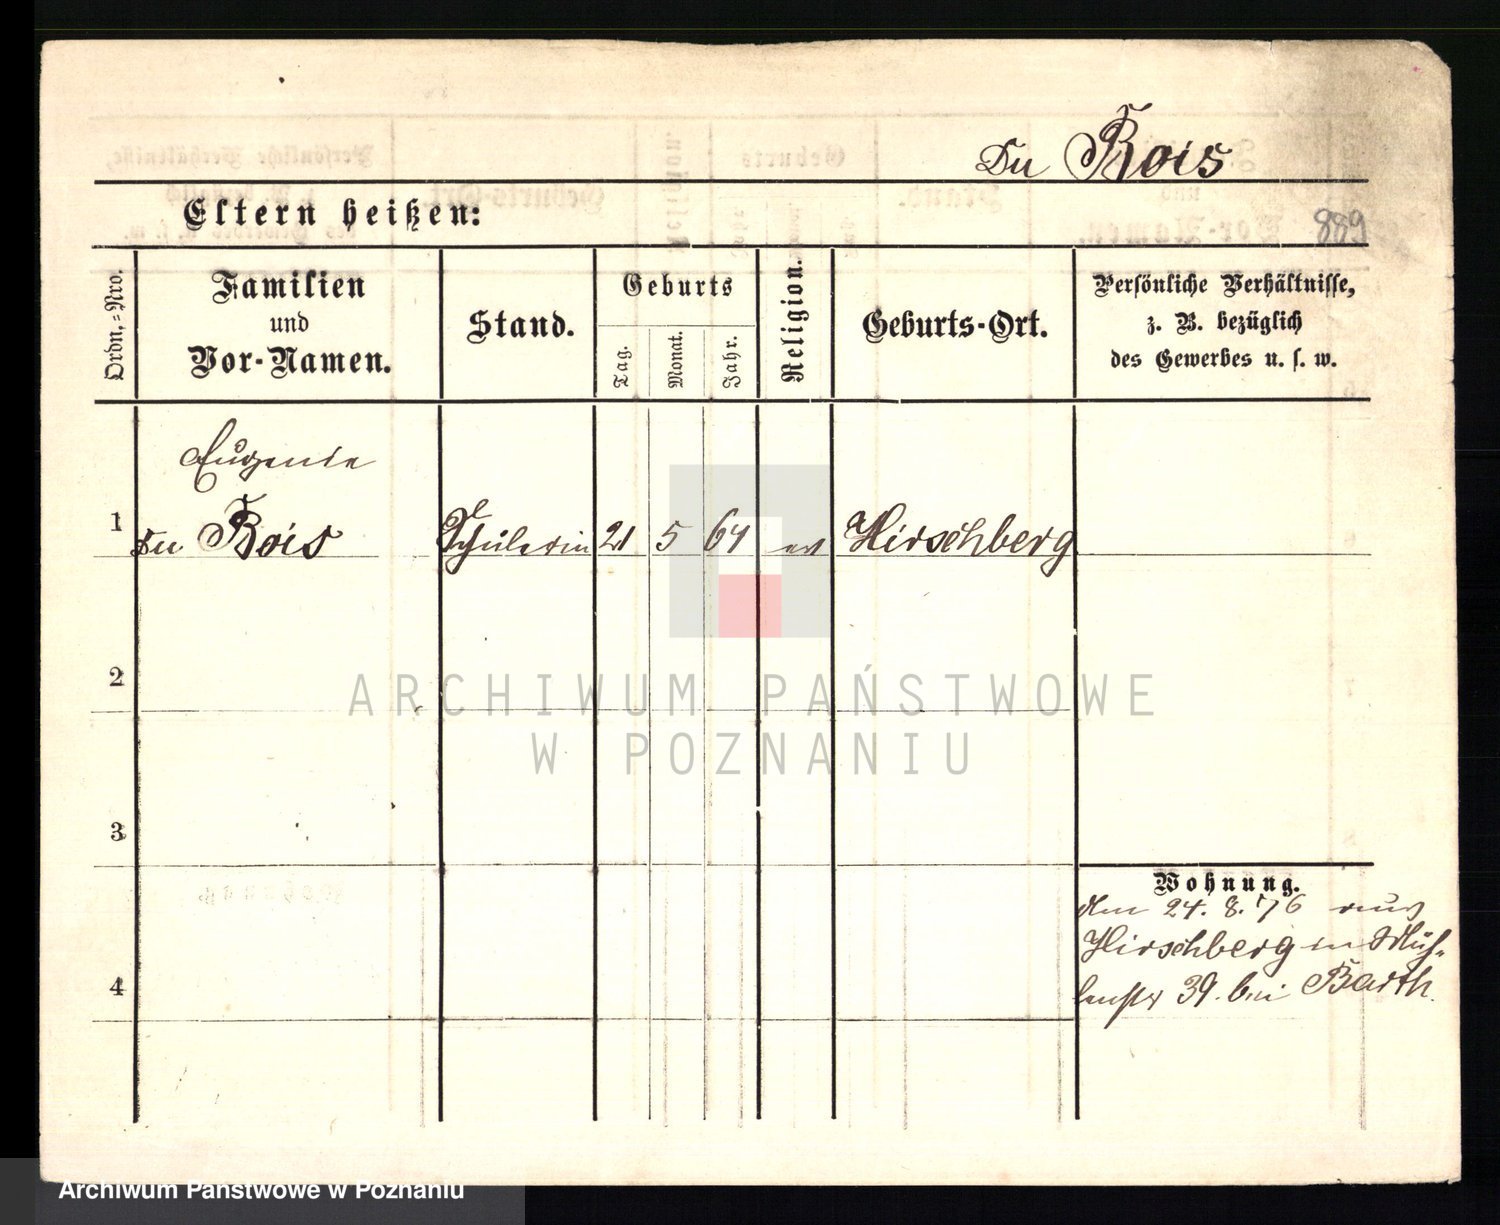 Du Bois
Eltern heißen:
889
Ordn.=Nro.
Familien
und
Vor-Namen.
Stand.
Geburts
Tag.
Monat.
Jahr.
Religion.
Geburts-Ort.
Persönliche Verhältnisse,
z. B. bezüglich
des Gewerbes u. s. w.
Eugenie
1 Du Bois Schülerin 21 5 61 ev Hirschberg
2
ARCHIWUM PAŃSTWOWE
W POZNANIU
3
Wohnung.
den 24. 8. 76 aus
Hirschberg in Müh-
lenstr 39. bei Barth.
4
Archiwum Panstwowe w Poznaniu